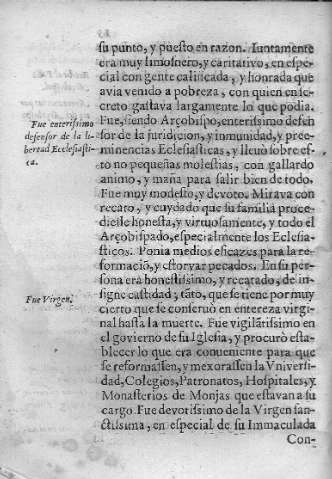 su punto, y puesto en razon. Iuntamente
era muy limosnero, y caritativo, en espe-
cial con gente calificada, y honrada que
avia venido a pobreza, con quien en se-
creto gastava largamente lo que podia.
Fue, siendo Arçobispo, enterissimo defen
sor de la juridicion, y inmunidad, y pree-
minencias Eclesiasticas, y llevò sobre es-
to no pequeñas molestias, con gallardo
animo, y maña para salir bien de todo.
Fue muy modesto, y devoto. Mirava con
recato, y cuydado que su familia proce-
diesse honesta, y virtuosamente, y todo el
Arçobispado, especialmente los Eclesia-
sticos. Ponia medios eficazes para la re-
formaciõ, y estorvar pecados. En su per-
sona era honestissimo, y recatado, de in-
signe castidad; tãto, que se tiene por muy
cierto que se conservò en entereza virgi-
nal hasta la muerte. Fue vigilãtissimo en
el govierno de su Iglesia, y procurò esta-
blecer lo que era conveniente para que
se reformassen, y mexorassen la Vniversi-
dad, Colegios, Patronatos, Hospitales, y
Monasterios de Monjas que estavan a su
cargo. Fue devotissimo de la Virgen san-
ctissima, en especial de su Inmaculada
Con-
Fue enterissimo
defensor de la li-
bertad Ecclesiasti-
ca.
Fue Virgen.